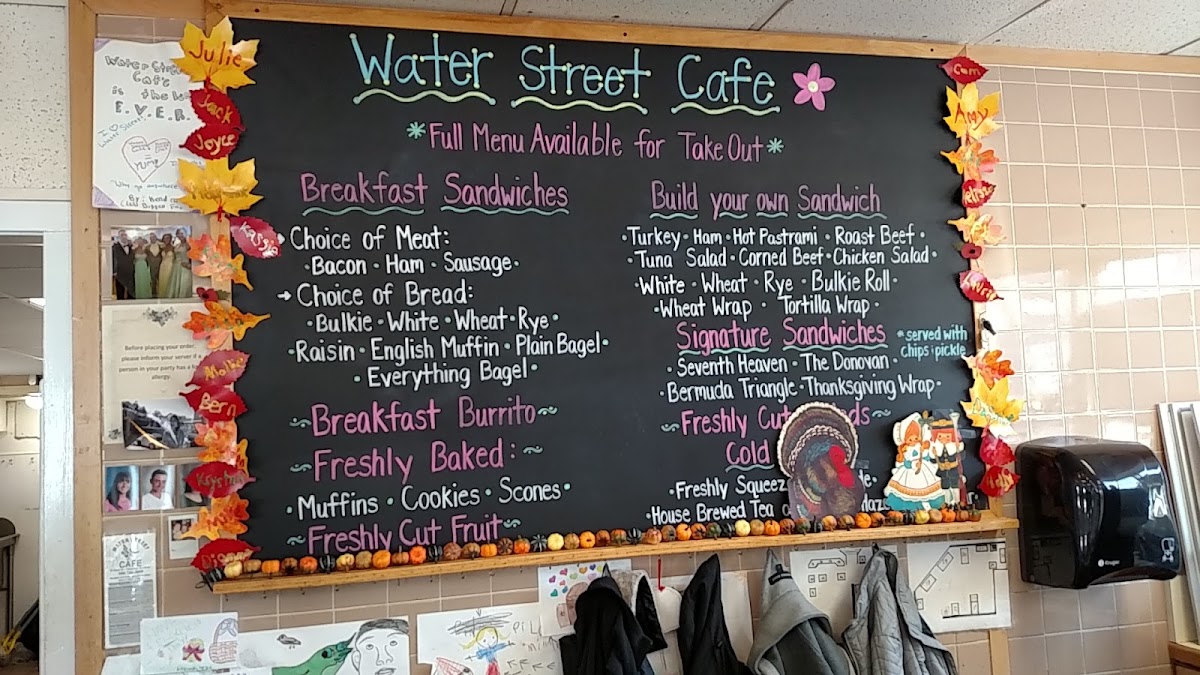 Water Street Cafe
*Full Menu Available for Take Out*
Breakfast Sandwiches
Choice of Meat:
Bacon • Ham • Sausage •
→ Choice of Bread:
• Bulkie • White • Wheat • Rye •
• Raisin • English Muffin • Plain Bagel •
• Everything Bagel •
~Breakfast Burrito~
~Freshly Baked:~
• Muffins • Cookies • Scones •
~Freshly Cut Fruit~
Build your own Sandwich
• Turkey • Ham • Hot Pastrami • Roast Beef •
• Tuna Salad • Corned Beef • Chicken Salad •
• White • Wheat • Rye • Bulkie Roll •
• Wheat Wrap • Tortilla Wrap •
Signature Sandwiches
*served with
chips & pickle
• Seventh Heaven • The Donovan •
• Bermuda Triangle • Thanksgiving Wrap •
~Freshly Cut
Cold
• Freshly
House Brewed Tea
Julie
Jack
Joyce
Kassie
Molly
Bern
Krystal
Cam
Amy
Laura
Water Street
Cafe
is the
E.V.E.R.
Before placing your order,
please inform your server if a
person in your party has a food
allergy.
CAFE